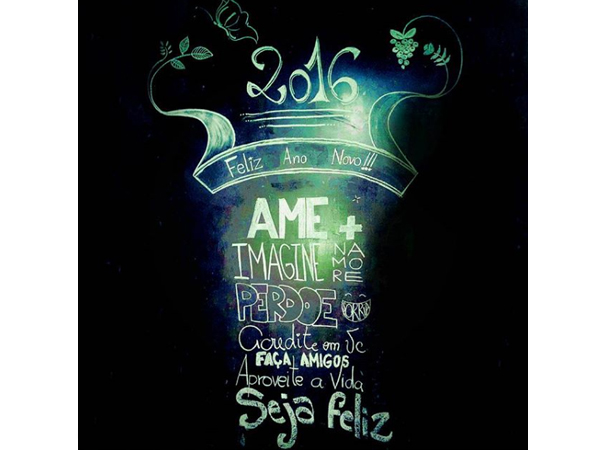 2016
Feliz Ano Novo!!!
AME +
IMAGINE NAMORE
PERDOE SORRIA
Acredite em Vc
FAÇA AMIGOS
Aproveite a Vida
Seja feliz